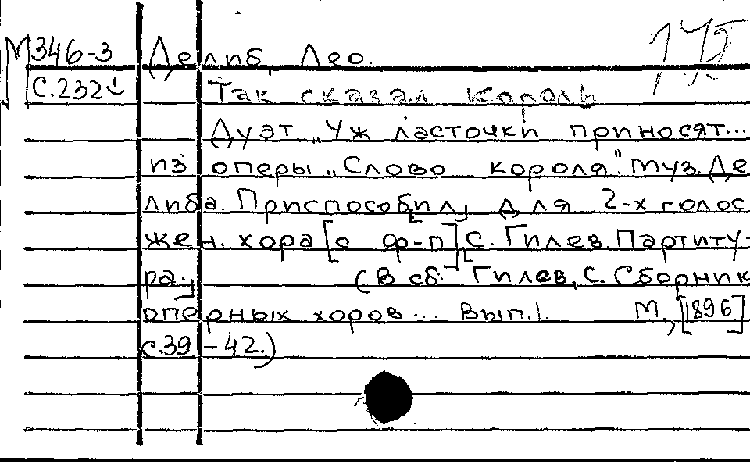 М346-3 Делиб, Лео.
с.232↓ Так сказал король
Дуэт „Уж ласточки приносят...
из оперы „Слово короля". Муз. Де
либа. Приспособил, для 2-х голос
жен. хора [с ф-п] С. Гилев. Партиту-
ра. (В сб. Гилев, С. Сборник
оперных хоров... Вып. I. М., [1896]
с.39-42.)